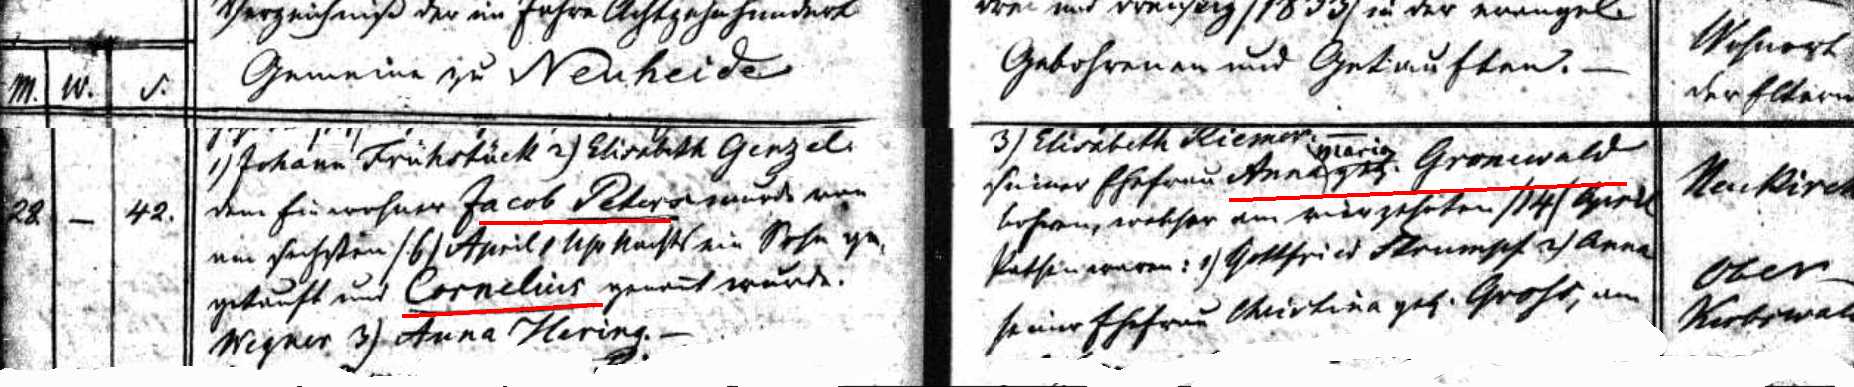 Verzeichniß der im Jahre Achtzehnhundert
Gemeine zu Neuheide
M. W. S.
1) Johann Frühstück 2) Elisabeth Genzel.
dem Einwohner Jacob Peters wurde von
28. — 42.
am sechsten /6/ April 1 Uhr Nachts ein Sohn ge-
getauft und Cornelius genant wurde.
Wegner 3) Anna Hering. —
drei und dreißig /1833/ in der evangel.
Gebohrenen und Getauften. —
3) Elisabeth Kiemer. —
seiner Ehefrau Anna Maria geb. Gronewald
bohren, welcher am vierzehnten /14/ April
Pathen waren: 1) Gottfried 2) Anna
seiner Ehefrau Christina geb. Gross, am
Wohnort
der Eltern
Neukirch
Ober-
Kerbswald